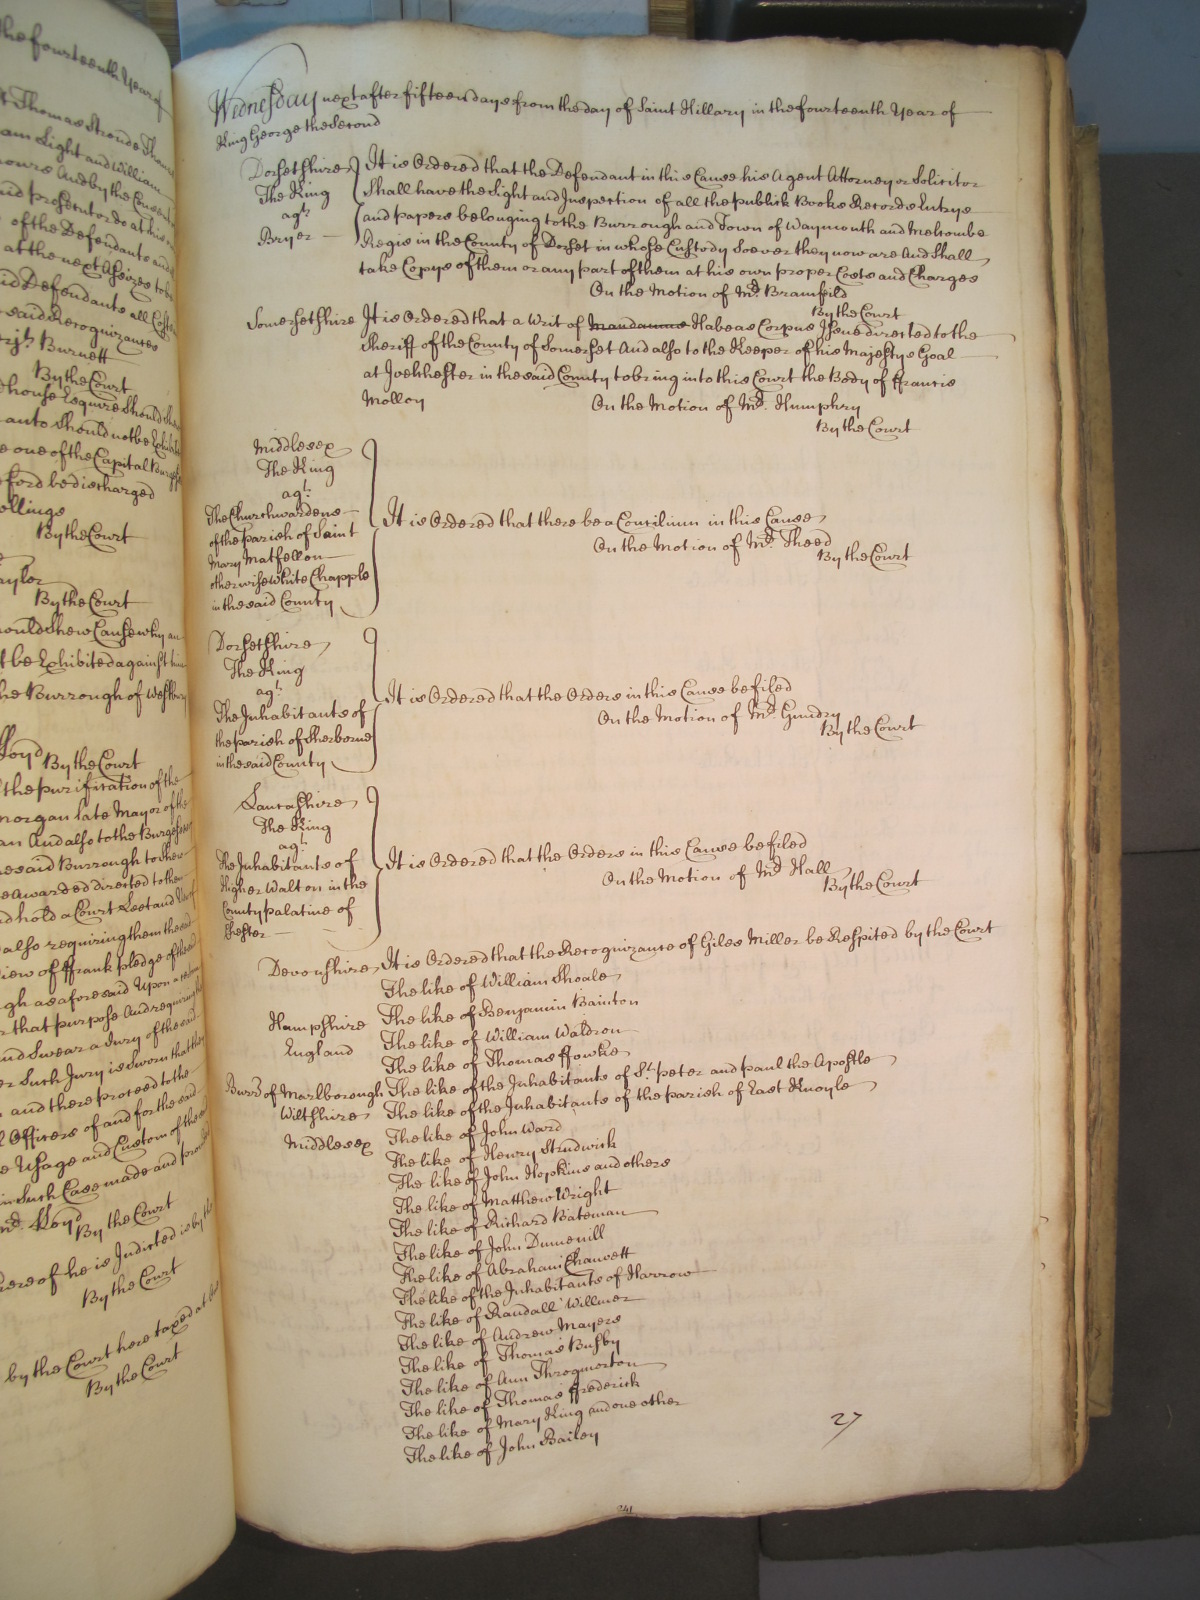 the fourteenth Year of
Thomas Strode
am Light and William
And by the Consent
aid prosecutor do at his
of the Defendants and
at the next Assizes to be
id Defendants all Costs
said Recognizances
Burnett
By the Court
house Esquire Should Shew
anto Should not be Exhibited
e one of the Capital Burgesses
ford be discharged
ollings
By the Court
aylor
By the Court
ould Shew Cause why an
t be Exhibited against him
he Burrough of Westbury
Lloyd By the Court
the purification of the
morgan late Mayor of the
an And also to the Burgesses
he said Burrough to Shew
e Awarded directed to them
d hold a Court Leet and View
also requiring them the said
iew of ffrank pledge of the said
gh as aforesaid Upon
r that purpose And requiring
and Swear a Jury of the said
er Such Jury is Sworn that they
and there proceed to the
l Officers of and for the said
e Usage and Custom of the
in Such Case made and provided
Mr. Lloyd By the Court
hereof he is Indicted is by the
By the Court
by the Court here taxed at
By the Court
Wednesday next after fifteen days from the day of Saint Hillary in the fourteenth Year of
King George the Second
Dorsetshire It is Ordered that the Defendant in this Cause his Agent Attorney or Solicitor
The King Shall have the Sight and Inspection of all the publick Books Records Entrys
agt. and papers belonging to the Burrough and Town of Waymouth and Melcombe
Bryer Regis in the County of Dorset in whose Custody Soever they now are And Shall
take Copys of them or any part of them at his own proper Costs and Charges
On the Motion of Mr. Bramfeild
By the Court
Somersetshire It is Ordered that a Writ of Mandamus Habeas Corpus Issue directed to the
Sheriff of the County of Somerset And also to the Keeper of his Majestys Goal
at Ivelchester in the said County to bring into this Court the Body of ffrancis
Molloy On the Motion of Mr. Humphry
By the Court
Middlesex
The King
agt.
The Churchwardens
of the parish of Saint
Mary Matfellon
otherwise White Chapple
in the said County
It is Ordered that there be a Consilium in this Cause
On the Motion of Mr. Theed
By the Court
Dorsetshire
The King
agt.
The Inhabitants of
the parish of Sherborne
in the said County
It is Ordered that the Orders in this Cause be filed
On the Motion of Mr. Gundry
By the Court
Lancashire
The King
agt.
The Inhabitants of
Higher Walton in the
County palatine of
Chester
It is Ordered that the Orders in this Cause be filed
On the Motion of Mr. Hall
By the Court
Devonshire It is Ordered that the Recognizance of Giles Miller be Respited by the Court
The like of William Shoale
Hampshire The like of Benjamin Bainton
England The like of William Waldron
The like of Thomas ffowke
Burr. of Marlborough The like of the Inhabitants of St. peter and paul the Apostle
Wiltshire The like of the Inhabitants of the parish of East Knoyle
Middlesex The like of John Ward
The like of Henry Strudwick
The like of John Hopkins and others
The like of Matthew Wright
The like of Richard Bateman
The like of John Dumenill
The like of Abraham Chauvett
The like of the Inhabitants of Harrow
The like of Randall Willmer
The like of Andrew Mayers
The like of Thomas Busby
The like of Ann Throgmorton
The like of Thomas ffrederick
The like of Mary King and one other
The like of John Bailey
27
241